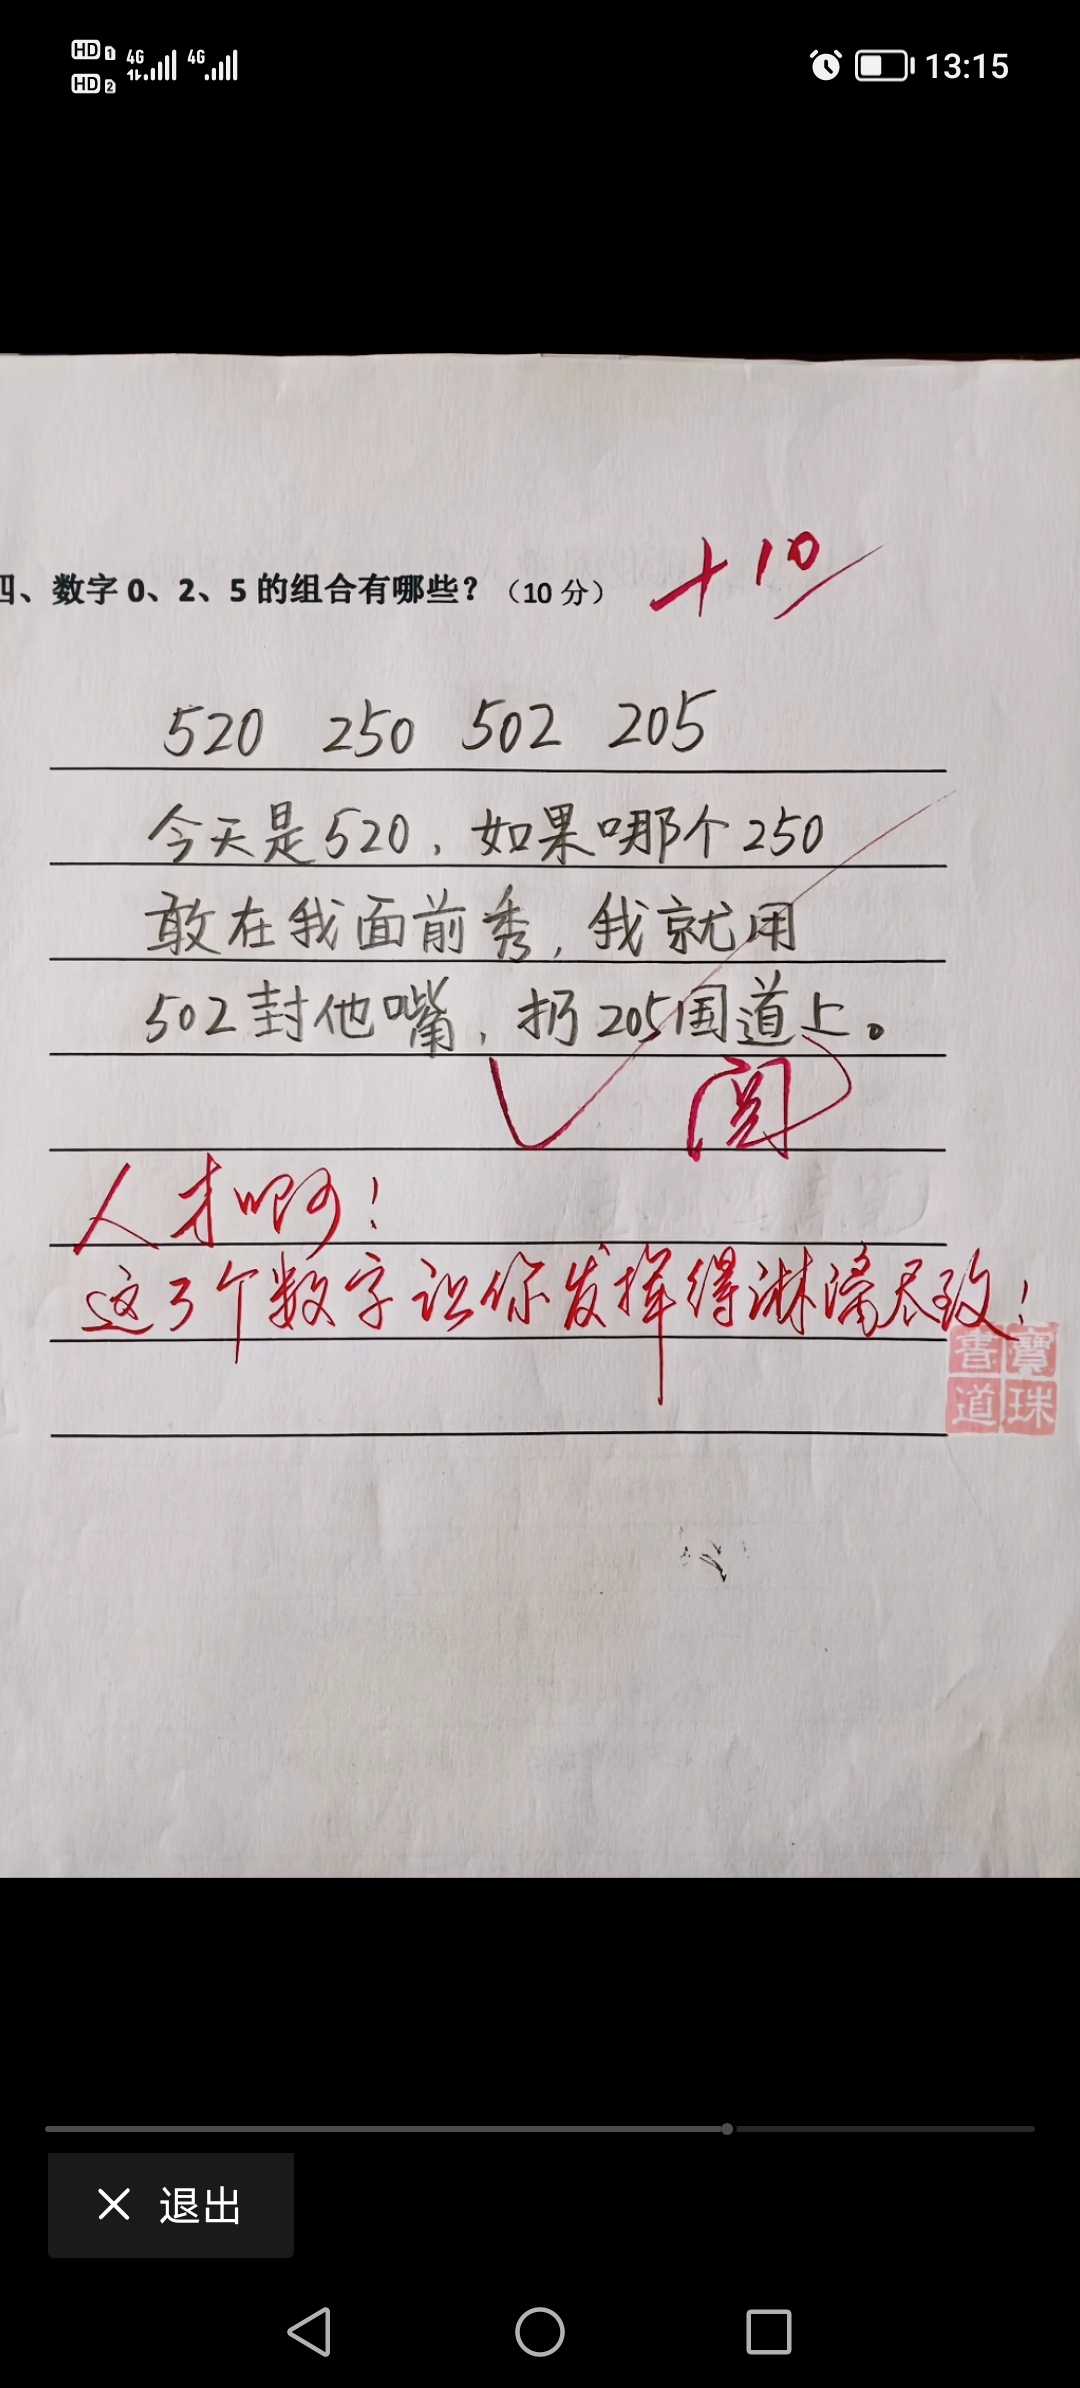 HD 1 4G 4G 13:15
HD 2
四、数字 0、2、5 的组合有哪些？（10 分） +10
520 250 502 205
今天是520，如果哪个250
敢在我面前秀，我就用
502封他嘴，扔205国道上。
阅
人才啊！
这3个数字让你发挥得淋漓尽致！
寶珠
書道
退出